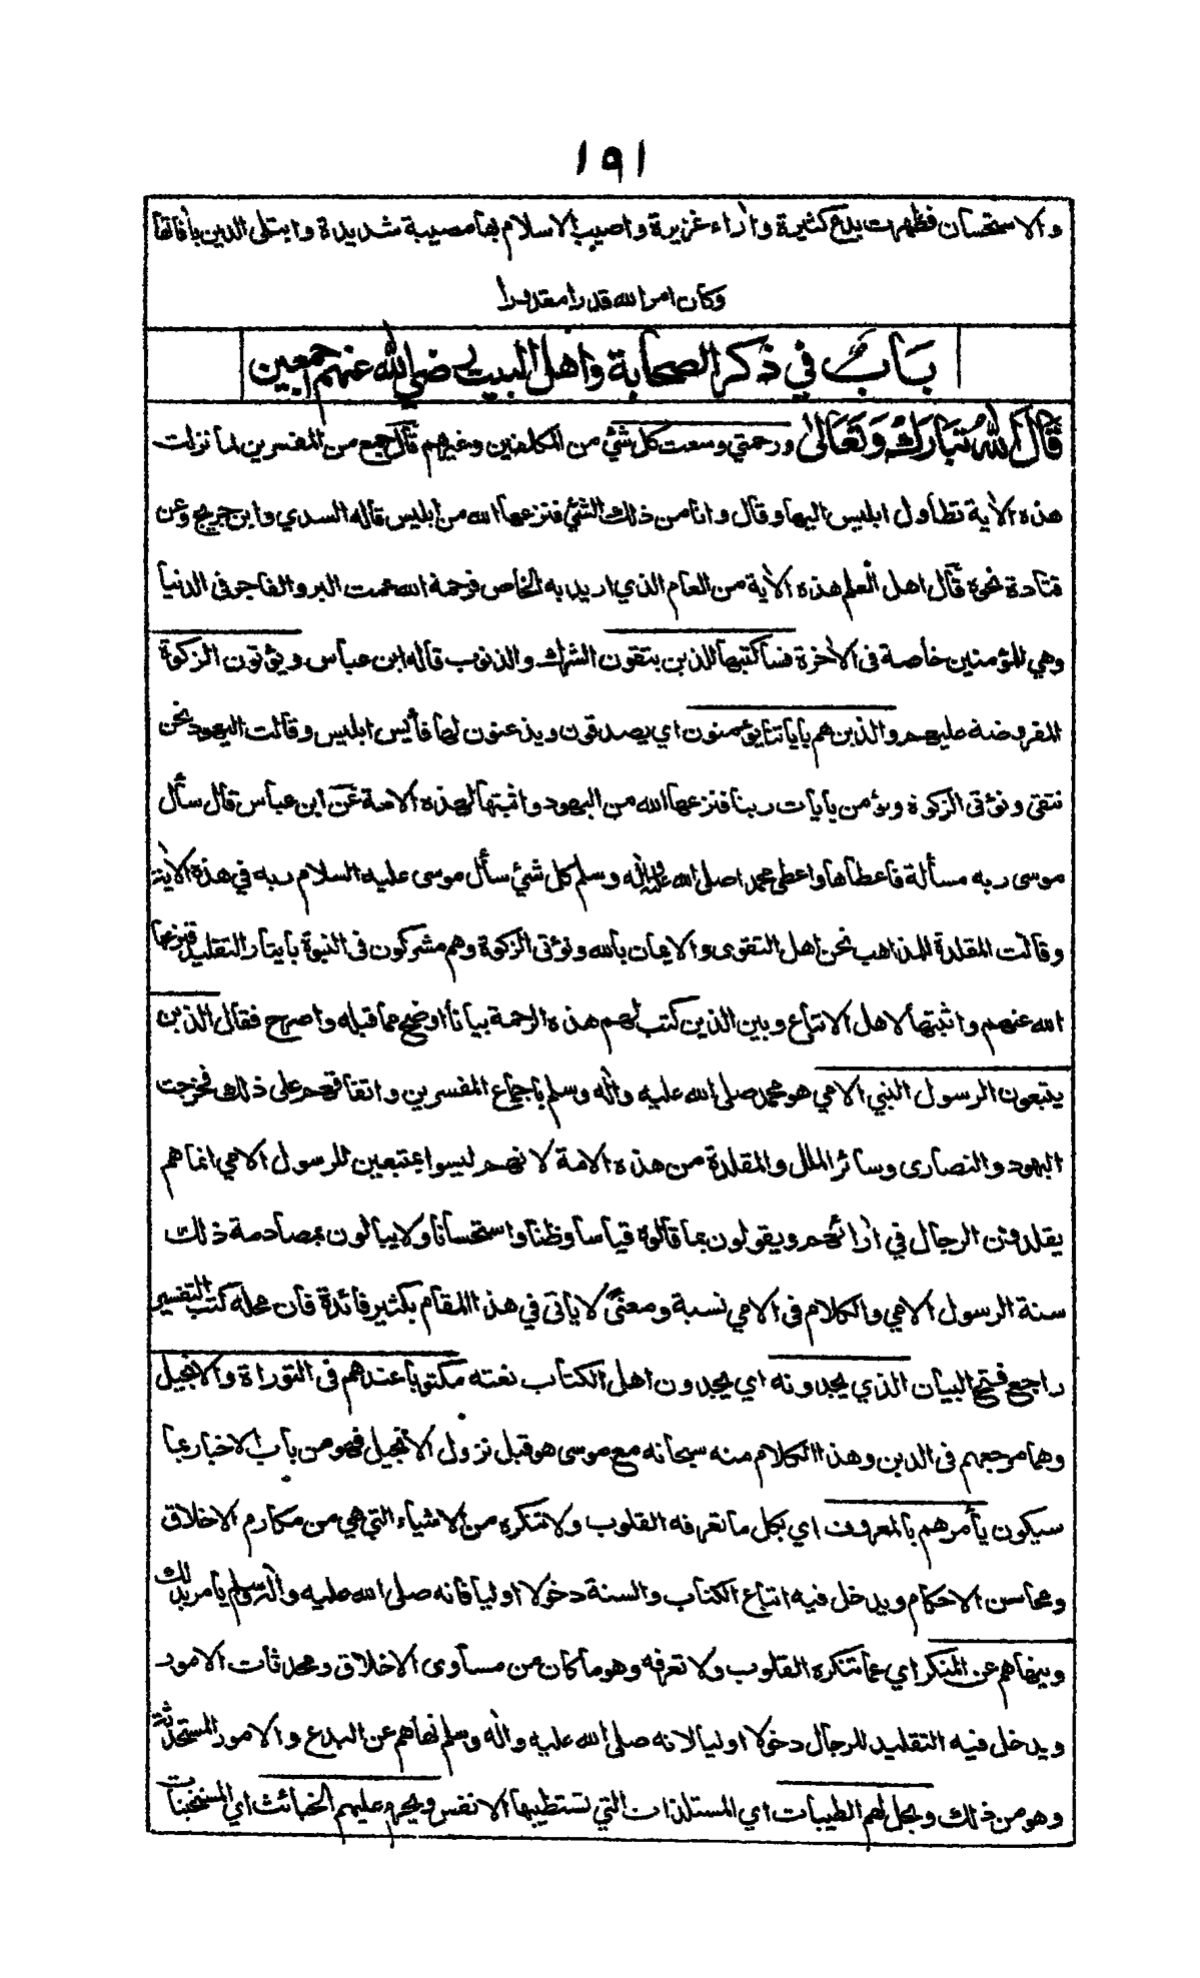 ١٩١
والاستحسان فظهرت بدع كثيرة واٰراء غزيرة واصيب الاسلام بها مصيبة شديدة وابتلى الدين بأفاتها
وكان امر الله قدرا مقدورا
بَابٌ في ذكر الصحابة واهل البيت رضي الله عنهم اجمعين
قَالَ اللهُ تَبَارَكَ وَتَعَالٰى ورحمتي وسعت كل شيئ من المكلفين وغيرهم قال جمع من المفسرين لما نزلت
هذه الاٰية تطاول ابليس اليها وقال وانا من ذلك الشيئ فنزعها الله من ابليس قاله السدي وابن جريج وعن
قتادة نحوه قال اهل العلم هذه الاٰية من العام الذي اريد به الخاص فرحمة الله عمت البر والفاجر فى الدنيا
وهي للمؤمنين خاصة فى الاٰخرة فسأكتبها للذين يتقون الشرك والذنوب قاله ابن عباس ويؤتون الزكوة
المفروضة عليهم والذين هم باٰياتنا يؤمنون اي يصدقون ويذعنون لها فأيس ابليس وقالت اليهود نحن
نتقى ونؤتى الزكوة ونؤمن باٰيات ربنا فنزعها الله من اليهود واثبتها لهذه الامة عن ابن عباس قال سأل
موسى ربه مسألة فاعطاها واعطى محمدا صلى الله عليه واٰله وسلم كل شيئ سأل موسى عليه السلام ربه في هذه الاٰية
وقالت المقلدة للمذاهب نحن اهل التقوى والايمان بالله ونؤتى الزكوة وهم مشركون فى النبوة بايثار التقليد فنزعها
الله عنهم واثبتها لاهل الاتباع وبين الذين كتب لهم هذه الرحمة بيانا اوضح مما قبله واصرح فقال الذين
يتبعون الرسول النبي الامي هو محمد صلى الله عليه واٰله وسلم باجماع المفسرين واتفاقهم على ذلك فخرجت
اليهود والنصارى وسائر الملل والمقلدة من هذه الامة لانهم ليسوا بمتبعين للرسول الامي انما هم
يقلدون الرجال في اٰرائهم ويقولون بما قالوه قياسا وظنا واستحسانا ولا يبالون بمصادمة ذلك
سنة الرسول الامي والكلام فى الامي نسبة ومعنًى لا ياتى في هذا المقام بكثير فائدة فان محله كتب التفسير
راجع فتح البيان الذي يجدونه اي يجدون اهل الكتاب نعته مكتوبا عندهم فى التوراة والانجيل
وهما مرجعهم فى الدين وهذا الكلام منه سبحانه مع موسى هو قبل نزول الانجيل فهو من باب الاخبار عما
سيكون يأمرهم بالمعروف اي بكل ما تعرفه القلوب ولا تنكره من الاشياء التي هي من مكارم الاخلاق
ومحاسن الاحكام ويدخل فيه اتباع الكتاب والسنة دخولا اوليا فانه صلى الله عليه واٰله وسلم يأمر بذلك
وينهاهم عن المنكر اي عما تنكره القلوب ولا تعرفه وهو ما كان من مساوى الاخلاق ومحدثات الامور
ويدخل فيه التقليد للرجال دخولا اوليا لانه صلى الله عليه واٰله وسلم نهاهم عن البدع والامور المستحدثة
وهو من ذلك ويحل لهم الطيبات اي المستلذات التي تستطيبها الانفس ويحرم عليهم الخبائث اي المستخبثات